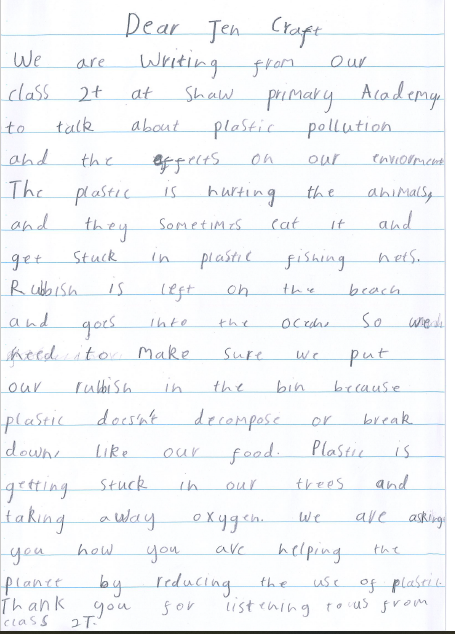 Dear Jen Craft
We are Writing from our
class 2t at Shaw primary Academy
to talk about plastic pollution
and the effects on our enviorment
The plastic is hurting the animals,
and they sometimes eat it and
get stuck in plastic fishing nets.
Rubbish is left on the beach
and goes into the ocean, so we
need to make sure we put
our rubbish in the bin because
plastic doesn't decompose or break
down, like our food. Plastic is
getting stuck in our trees and
taking away oxygen. We are asking
you how you are helping the
planet by reducing the use of plastic.
Thank you for listening to us from
class 2T.